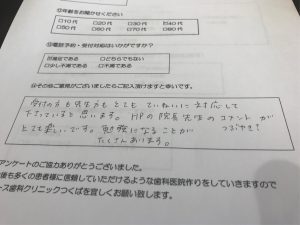 ⑫年齢をお聞かせください
□10代 □20代 □30代 ☑40代
□50代 □60代 □70代 □80代
⑬電話予約・受付対応はいかがですか？
☑満足である □どちらでもない
□少し不満である □不満である
⑭その他ご意見がございましたらご記入頂けますと幸いです。
受付の方も先生方もとてもていねいに対応して
下さっていると思います。HPの院長先生のコメントが
とても楽しいです。勉強になることが つぶやき？
たくさんあります。
アンケートのご協力ありがとうございました。
後も多くの患者様に信頼していただけるような歯科医院作りをしていきますので
ース歯科クリニックつくばを宜しくお願い致します。